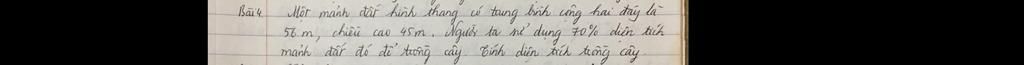 Bài 4. Một mảnh đất hình thang có trung bình cộng hai đáy là
56 m, chiều cao 45m. Người ta sử dụng 70% diện tích
mảnh đất đó để trồng cây. Tính diện tích trồng cây.